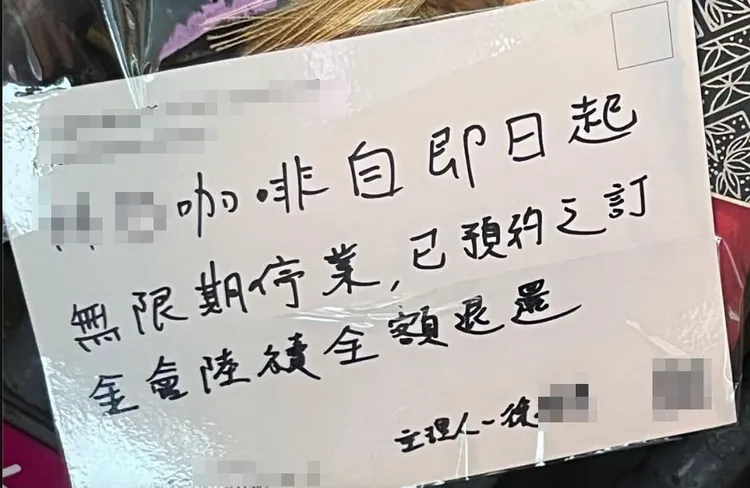 咖啡自即日起
無限期停業,已預約之訂
金會陸續全額退還
主理人-徐